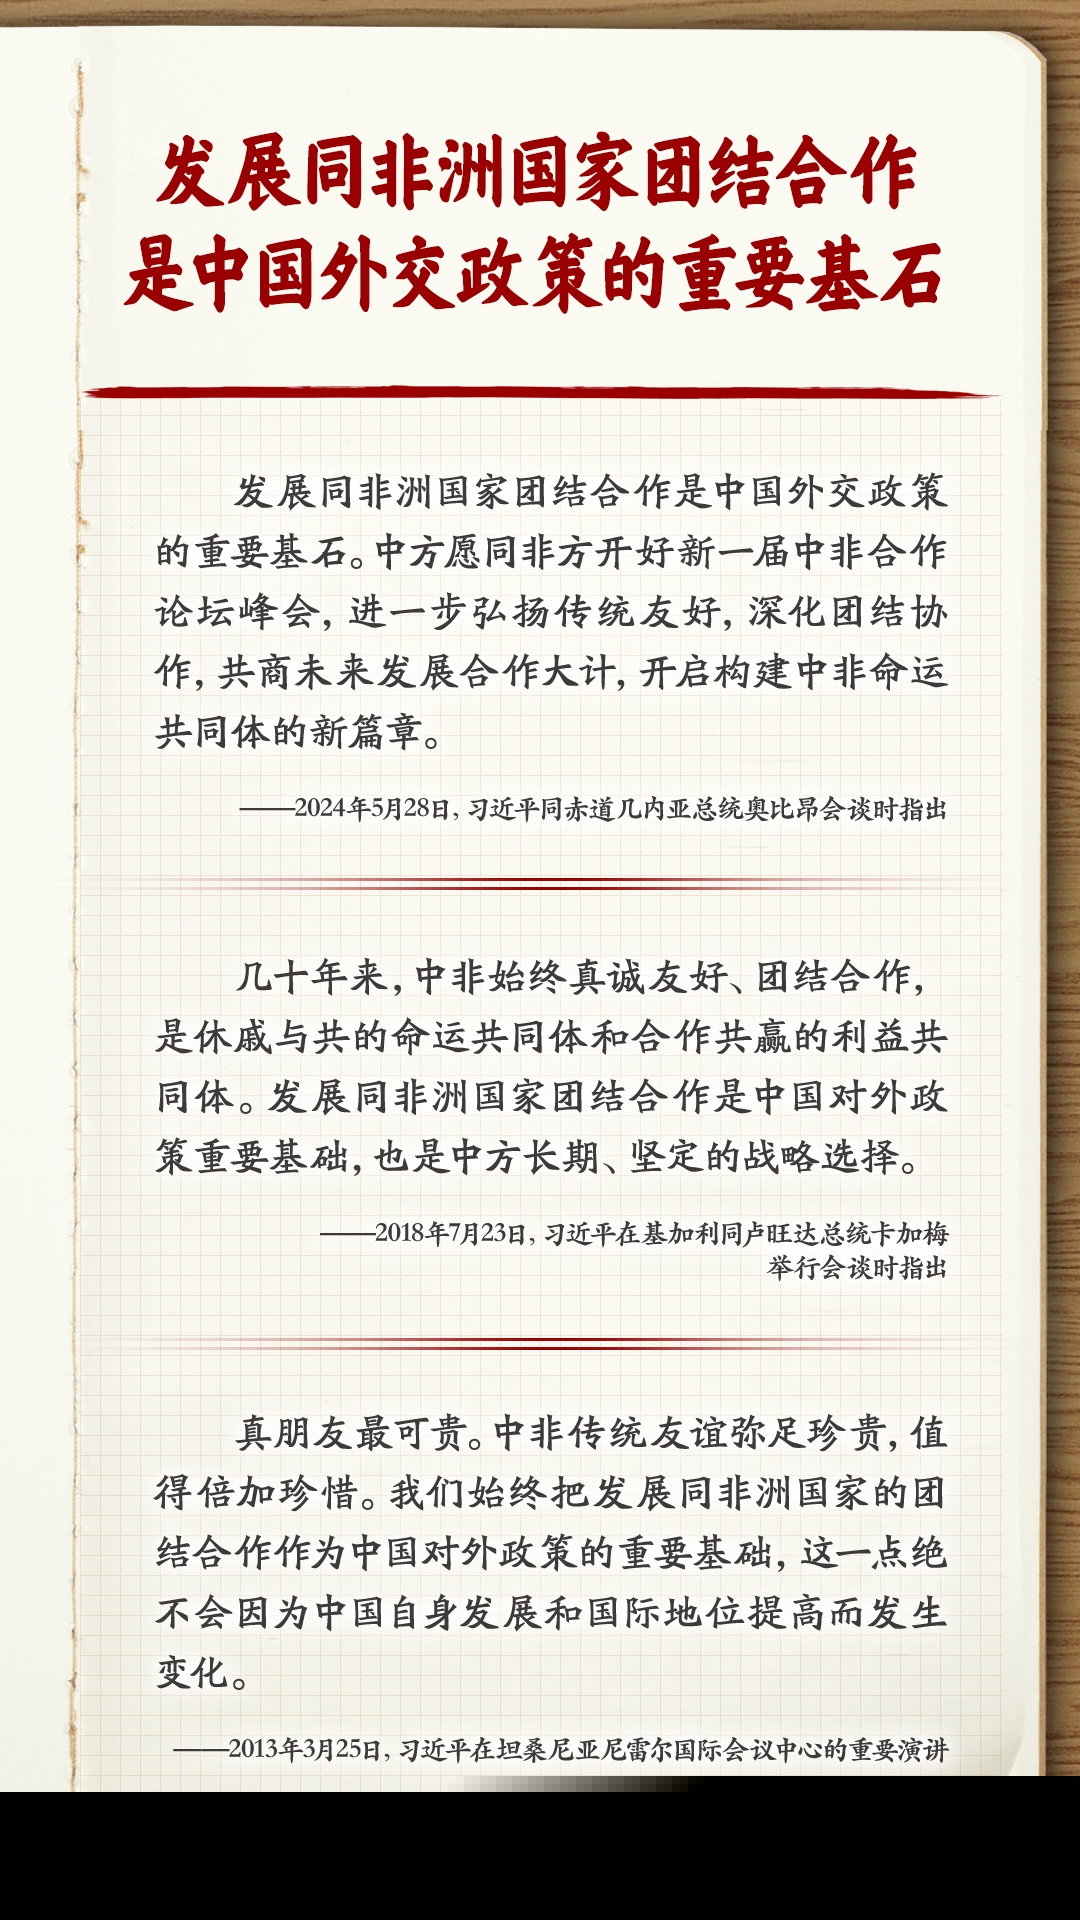 发展同非洲国家团结合作
是中国外交政策的重要基石
发展同非洲国家团结合作是中国外交政策
的重要基石。中方愿同非方开好新一届中非合作
论坛峰会,进一步弘扬传统友好,深化团结协
作,共商未来发展合作大计,开启构建中非命运
共同体的新篇章。
——2024年5月28日,习近平同赤道几内亚总统奥比昂会谈时指出
几十年来,中非始终真诚友好、团结合作,
是休戚与共的命运共同体和合作共赢的利益共
同体。发展同非洲国家团结合作是中国对外政
策重要基础,也是中方长期、坚定的战略选择。
——2018年7月23日,习近平在基加利同卢旺达总统卡加梅
举行会谈时指出
真朋友最可贵。中非传统友谊弥足珍贵,值
得倍加珍惜。我们始终把发展同非洲国家的团
结合作作为中国对外政策的重要基础,这一点绝
不会因为中国自身发展和国际地位提高而发生
变化。
——2013年3月25日,习近平在坦桑尼亚尼雷尔国际会议中心的重要演讲